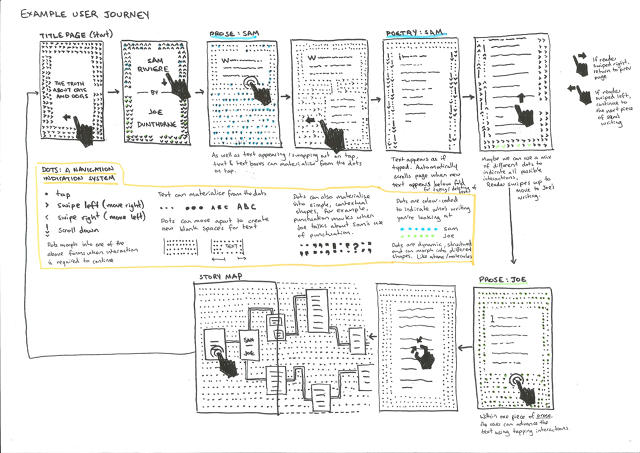 EXAMPLE USER JOURNEY
TITLE PAGE (Start)
PROSE: SAM
POETRY: SAM
THE TRUTH
ABOUT CATS
AND DOGS
SAM
RIVIERE
BY
JOE
DUNTHORNE
If reader
swiped right,
return to prev
page
If reader
swiped left,
continue to
the next piece of
Sam's writing
As well as text appearing/swapping out on tap,
text & text boxes can materialise from the dots
on tap.
Text appears as if
typed. Automatically
scrolls page when new
text appears below fold
Maybe we can use a mix
of different dots to
indicate all possible
interactions.
Reader swipes up to
move to Joe's
writing.
DOTS: A NAVIGATION
INDICATION SYSTEM
• tap
> Swipe left (move right)
< Swipe right (move left)
Scroll down
Dots morph into one of the
above forms when interaction
is required to continue
Text can materialise from the dots
ABC
Dots can move apart to create
new blank spaces for text
TEXT
Dots can also materialise
into simple, contextual
shapes, for example,
punctuation marks when
Joe talks about Sam's use
of punctuation.
Dots are colour-coded
to indicate who's writing
you're looking at
Sam
Joe
Dots are dynamic, structured
and can morph into different
shapes. Like atoms/molecules
STORY MAP
SAM
JOE
PROSE: JOE
Within one piece of prose
the user can advance the
text using tapping interactions